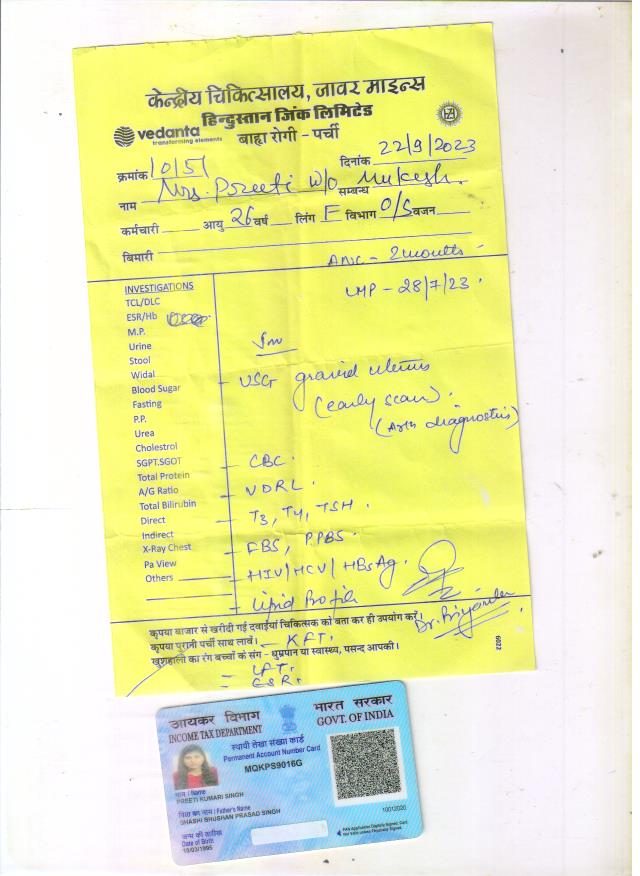 केन्द्रीय चिकित्सालय, जावर माइन्स
हिन्दुस्तान जिंक लिमिटेड
vedanta
transforming elements
बाह्य रोगी - पर्ची
क्रमांक 10151 दिनांक 22/9/2023
नाम Mrs. Preeti W/O सम्बन्ध Mukesh.
कर्मचारी आयु 26 वर्ष लिंग F विभाग O/S वजन
बिमारी
ANC - 2 months -
LMP - 28/7/23.
INVESTIGATIONS
TCL/DLC
ESR/Hb
M.P.
Urine
Stool
Widal
Blood Sugar
Fasting
P.P.
Urea
Cholestrol
SGPT.SGOT
Total Protein
A/G Ratio
Total Bilirubin
Direct
Indirect
X-Ray Chest
Pa View
Others
- USG gravid uterus
(early scan).
- CBC.
- VDRL.
- T3, T4, TSH.
- FBS, PPBS.
- HIV/HCV/HBsAg.
- Lipid Profile
Dr. Priyanka
कृपया बाजार से खरीदी गई दवाईयां चिकित्सक को बता कर ही उपयोग करें।
कृपया पुरानी पर्ची साथ लावें। - KFT.
खुशहाली का रंग बच्चों के संग - धुम्रपान या स्वास्थ्य, पसन्द आपकी।
- LFT.
- ESR.
6022
आयकर विभाग
INCOME TAX DEPARTMENT
भारत सरकार
GOVT. OF INDIA
स्थायी लेखा संख्या कार्ड
Permanent Account Number Card
MQKPS9016G
नाम / Name
PREETI KUMARI SINGH
पिता का नाम / Father's Name
SHASHI BHUSHAN PRASAD SINGH
जन्म की तारीख
Date of Birth
10/03/1995
10012020
PAN Application Digitally Signed, Card Not Valid unless Physically Signed.